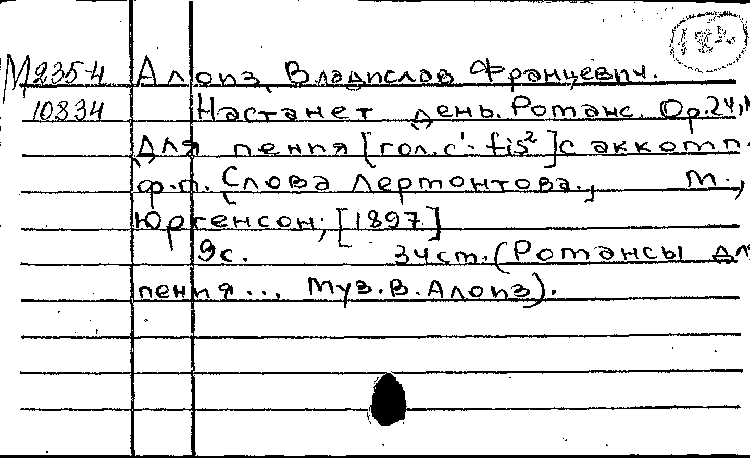 182
М235-4 Алоиз, Владислав Францевич.
10834 Настанет день. Романс. Op.24, N
Для пения [гол. c¹- fis²] с аккомп.
ф.-п. Слова Лермонтова., М.,
Юргенсон; [1897]
9с. 34см. (Романсы дл
пения... муз. В. Алоиз).